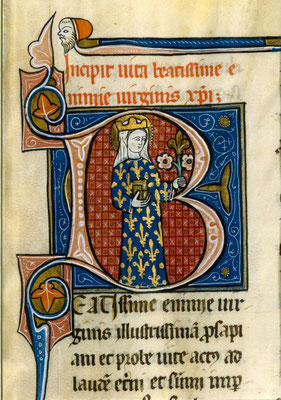 Incipit uita beatissime e
nimie uirginis xpi;
BEATissime enimie uir
ginis illustrissimā psapi
am et prole uite actꝰ ad
laudē et